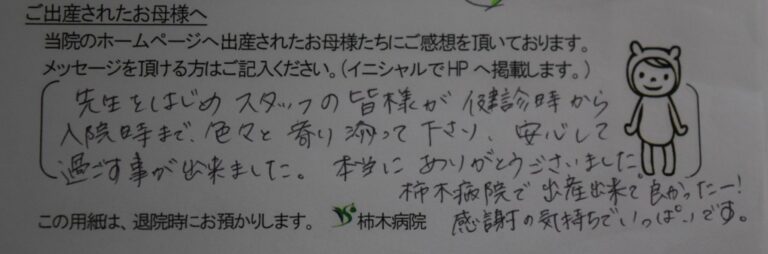 ご出産されたお母様へ
当院のホームページへ出産されたお母様たちにご感想を頂いております。
メッセージを頂ける方はご記入ください。(イニシャルでHPへ掲載します。)
先生をはじめスタッフの皆様が健診時から
入院時まで、色々と寄り添って下さり、安心して
過ごす事が出来ました。本当にありがとうございました。
柿木病院で出産出来て良かったー!
感謝の気持ちでいっぱいです。
この用紙は、退院時にお預かりします。 柿木病院